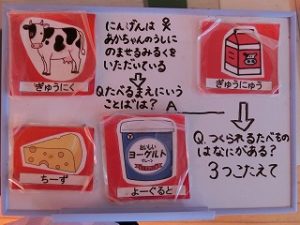 にんげんは
あかちゃんのうしに
のませるみるくを
いただいている
Q.たべるまえにいう
ことばは? A
ぎゅうにく
ぎゅうにゅう
Q.つくられるたべもの
はなにがある?
3つこたえて
ちーず
おいしい
ヨーグルト
よーぐると